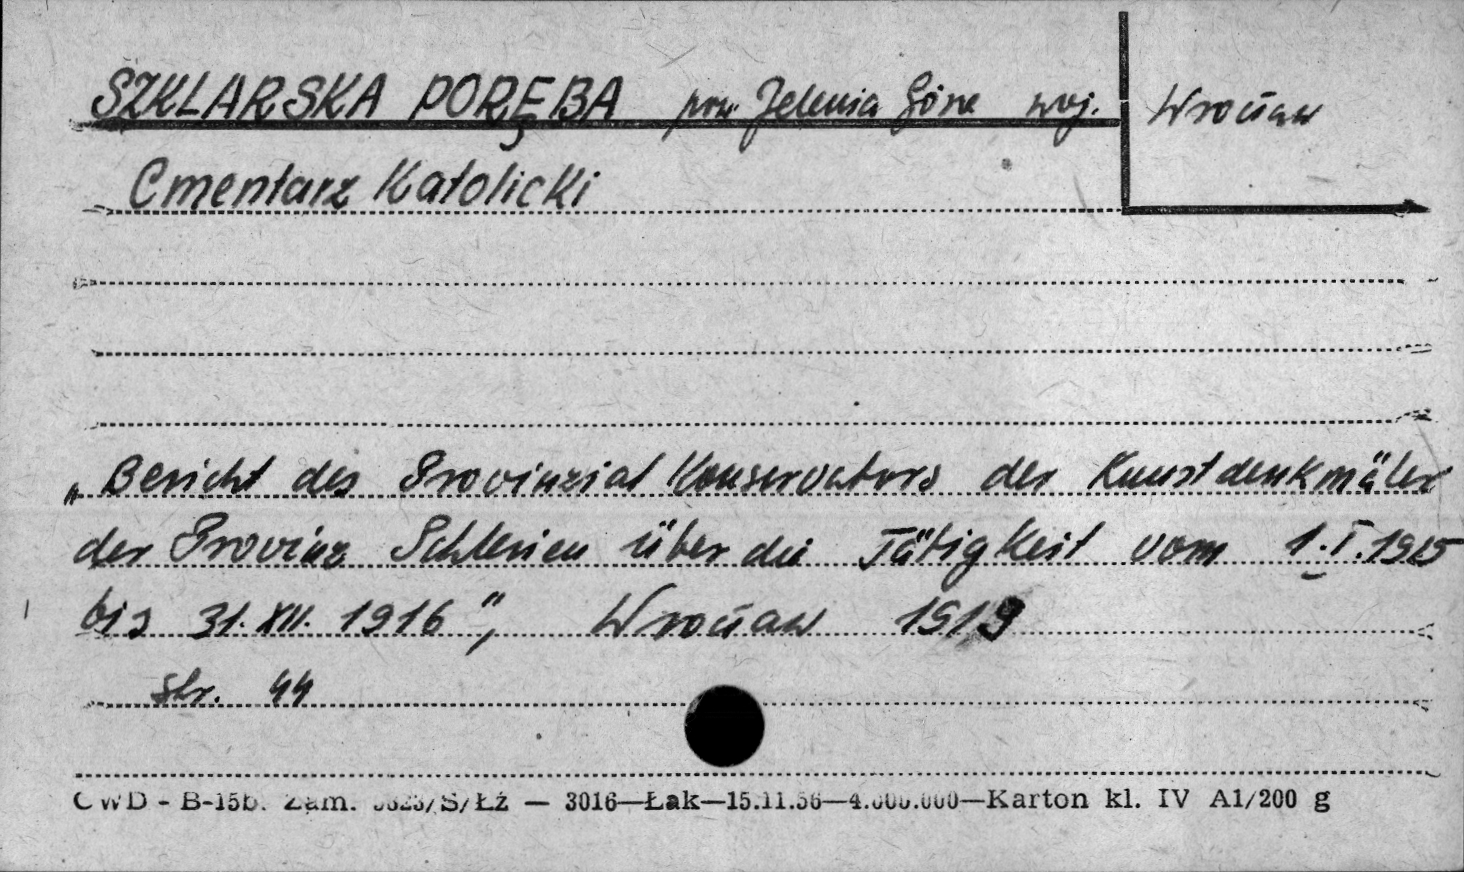 SZKLARSKA PORĘBA pow. Jelenia Góra woj. Wrocław
Cmentarz Katolicki
„Bericht des Provinzial Konservators der Kunstdenkmäler
der Provinz Schlesien über die Tätigkeit vom 1.I.1915
bis 31.XII.1916”, Wrocław 1919
str. 44
CWD - B-15b. Zam. /S/Łż — 3016—Łak—15.11.56—4.000.000—Karton kl. IV A1/200 g